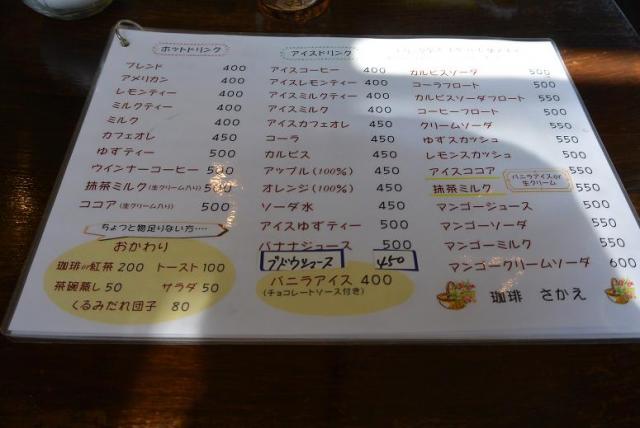 ホットドリンク
ブレンド 400
アメリカン 400
レモンティー 400
ミルクティー 400
ミルク 400
カフェオレ 450
ゆずティー 500
ウインナーコーヒー 500
抹茶ミルク(生クリーム入り) 500
ココア(生クリーム入り) 500
ちょっと物足りない方‥‥
おかわり
珈琲or紅茶 200 トースト 100
茶碗蒸し 50 サラダ 50
くるみだれ団子 80
アイスドリンク
アイスコーヒー 400
アイスレモンティー 400
アイスミルクティー 400
アイスミルク 400
アイスカフェオレ 450
コーラ 450
カルピス 450
アップル(100%) 450
オレンジ(100%) 450
ソーダ水 450
アイスゆずティー 500
バナナジュース 500
ブドウジュース 450
バニラアイス 400
(チョコレートソース付き)
カルピスソーダ 500
コーラフロート 550
カルピスソーダフロート 550
コーヒーフロート 550
クリームソーダ 550
ゆずスカッシュ 550
レモンスカッシュ 550
アイスココア 550
抹茶ミルク 550
バニラアイスor
生クリーム
マンゴージュース 500
マンゴーソーダ 550
マンゴーミルク 550
マンゴークリームソーダ 600
珈琲 さかえ